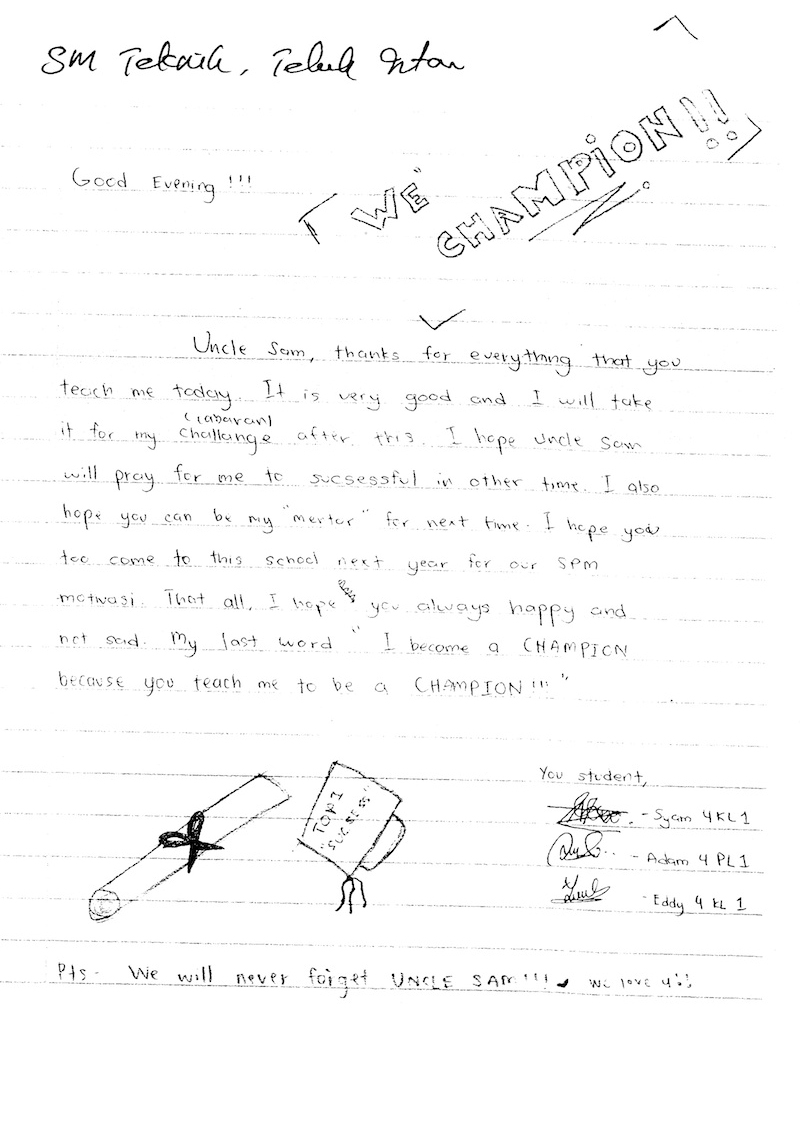 SM Teknik, Teluk Intan
"WE"
CHAMPiON!!
Good Evening !!!
Uncle Sam, thanks for everything that you
teach me today. It is very good and I will take
(cabaran)
it for my challange after this. I hope Uncle Sam
will pray for me to sucsessful in other time. I also
hope you can be my "mentor" for next time. I hope you
too come to this school next year for our SPM
motivasi. That all, I hope you always happy and
not said. My last word " I become a CHAMPION
because you teach me to be a CHAMPION!!! "
You student,
- Syam 4 KL 1
- Adam 4 PL 1
- Eddy 4 KL 1
TOP 1
"SUCSESS"
Pts - We will never forget UNCLE SAM!!! We love u!!